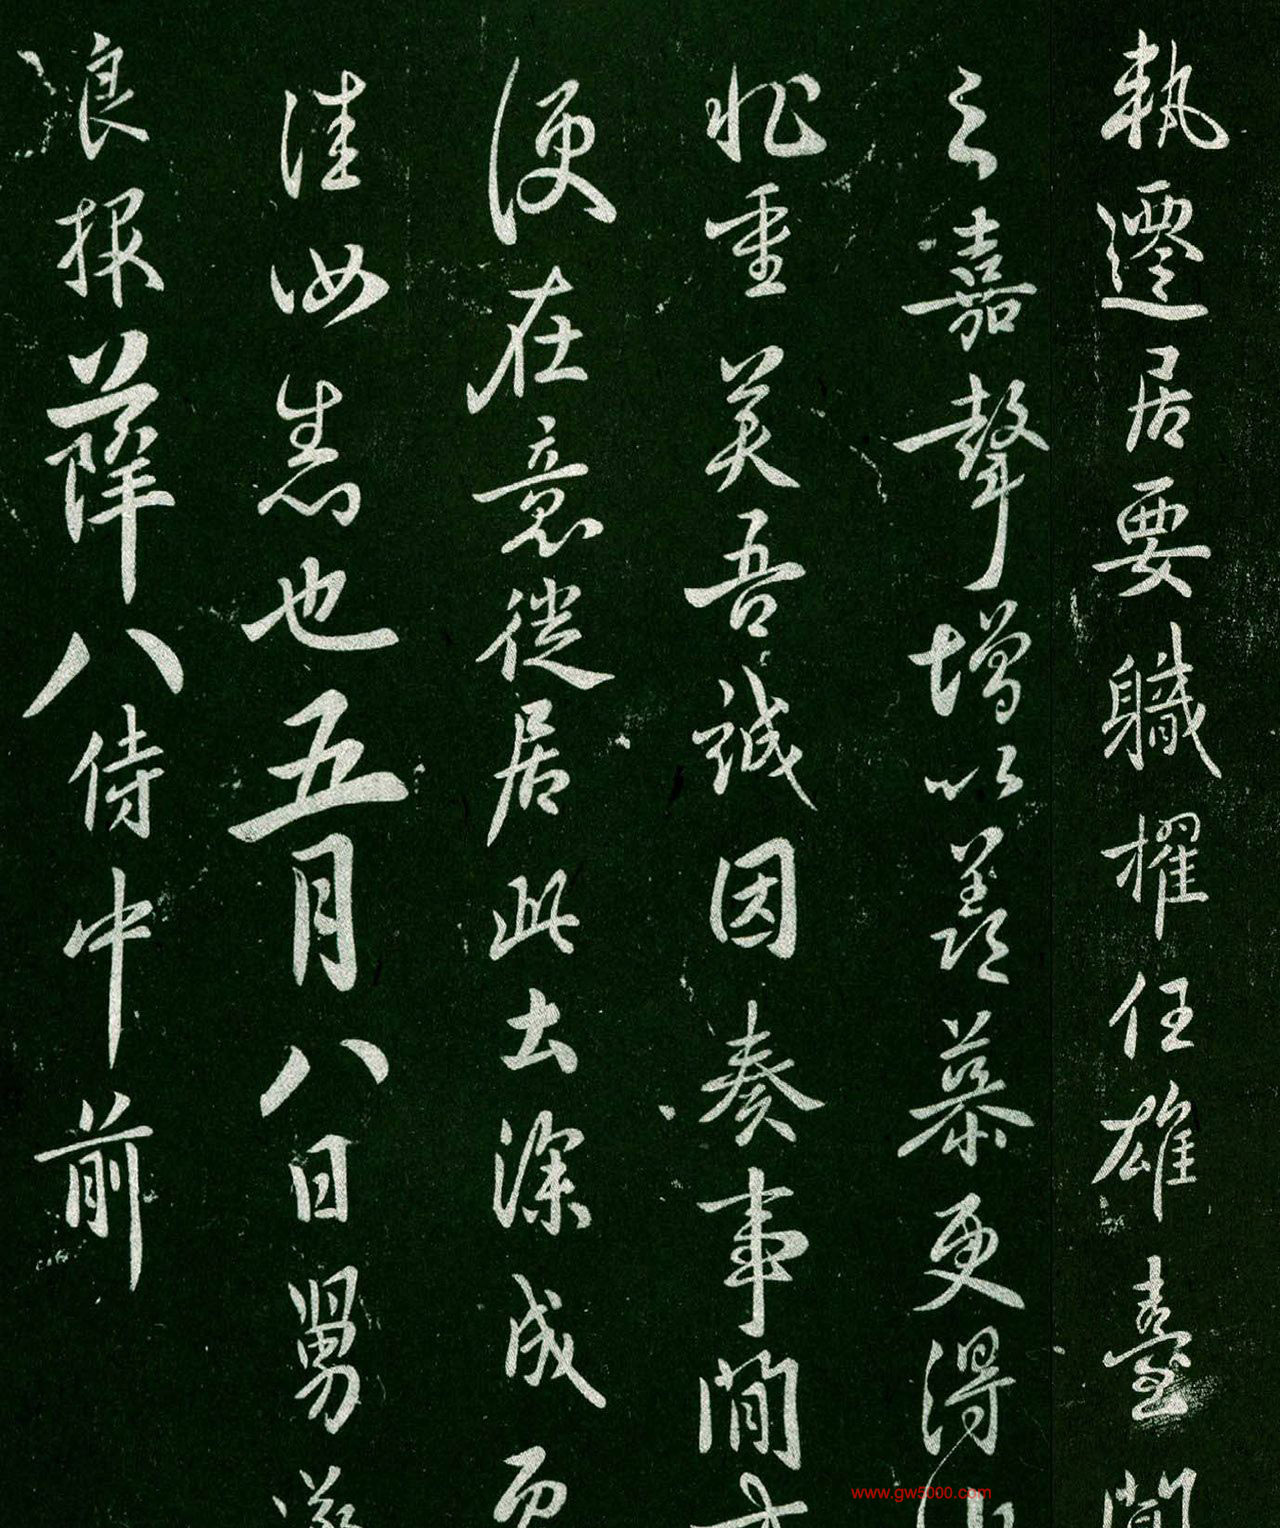 執遷居要職擢任雄臺閒
之嘉聲增以羨慕更得
非重英吾誠因奏事閒
便在意從居此去深成而
佳汝惠也五月八日舅
浪報薛八侍中前
www.gw5000.com